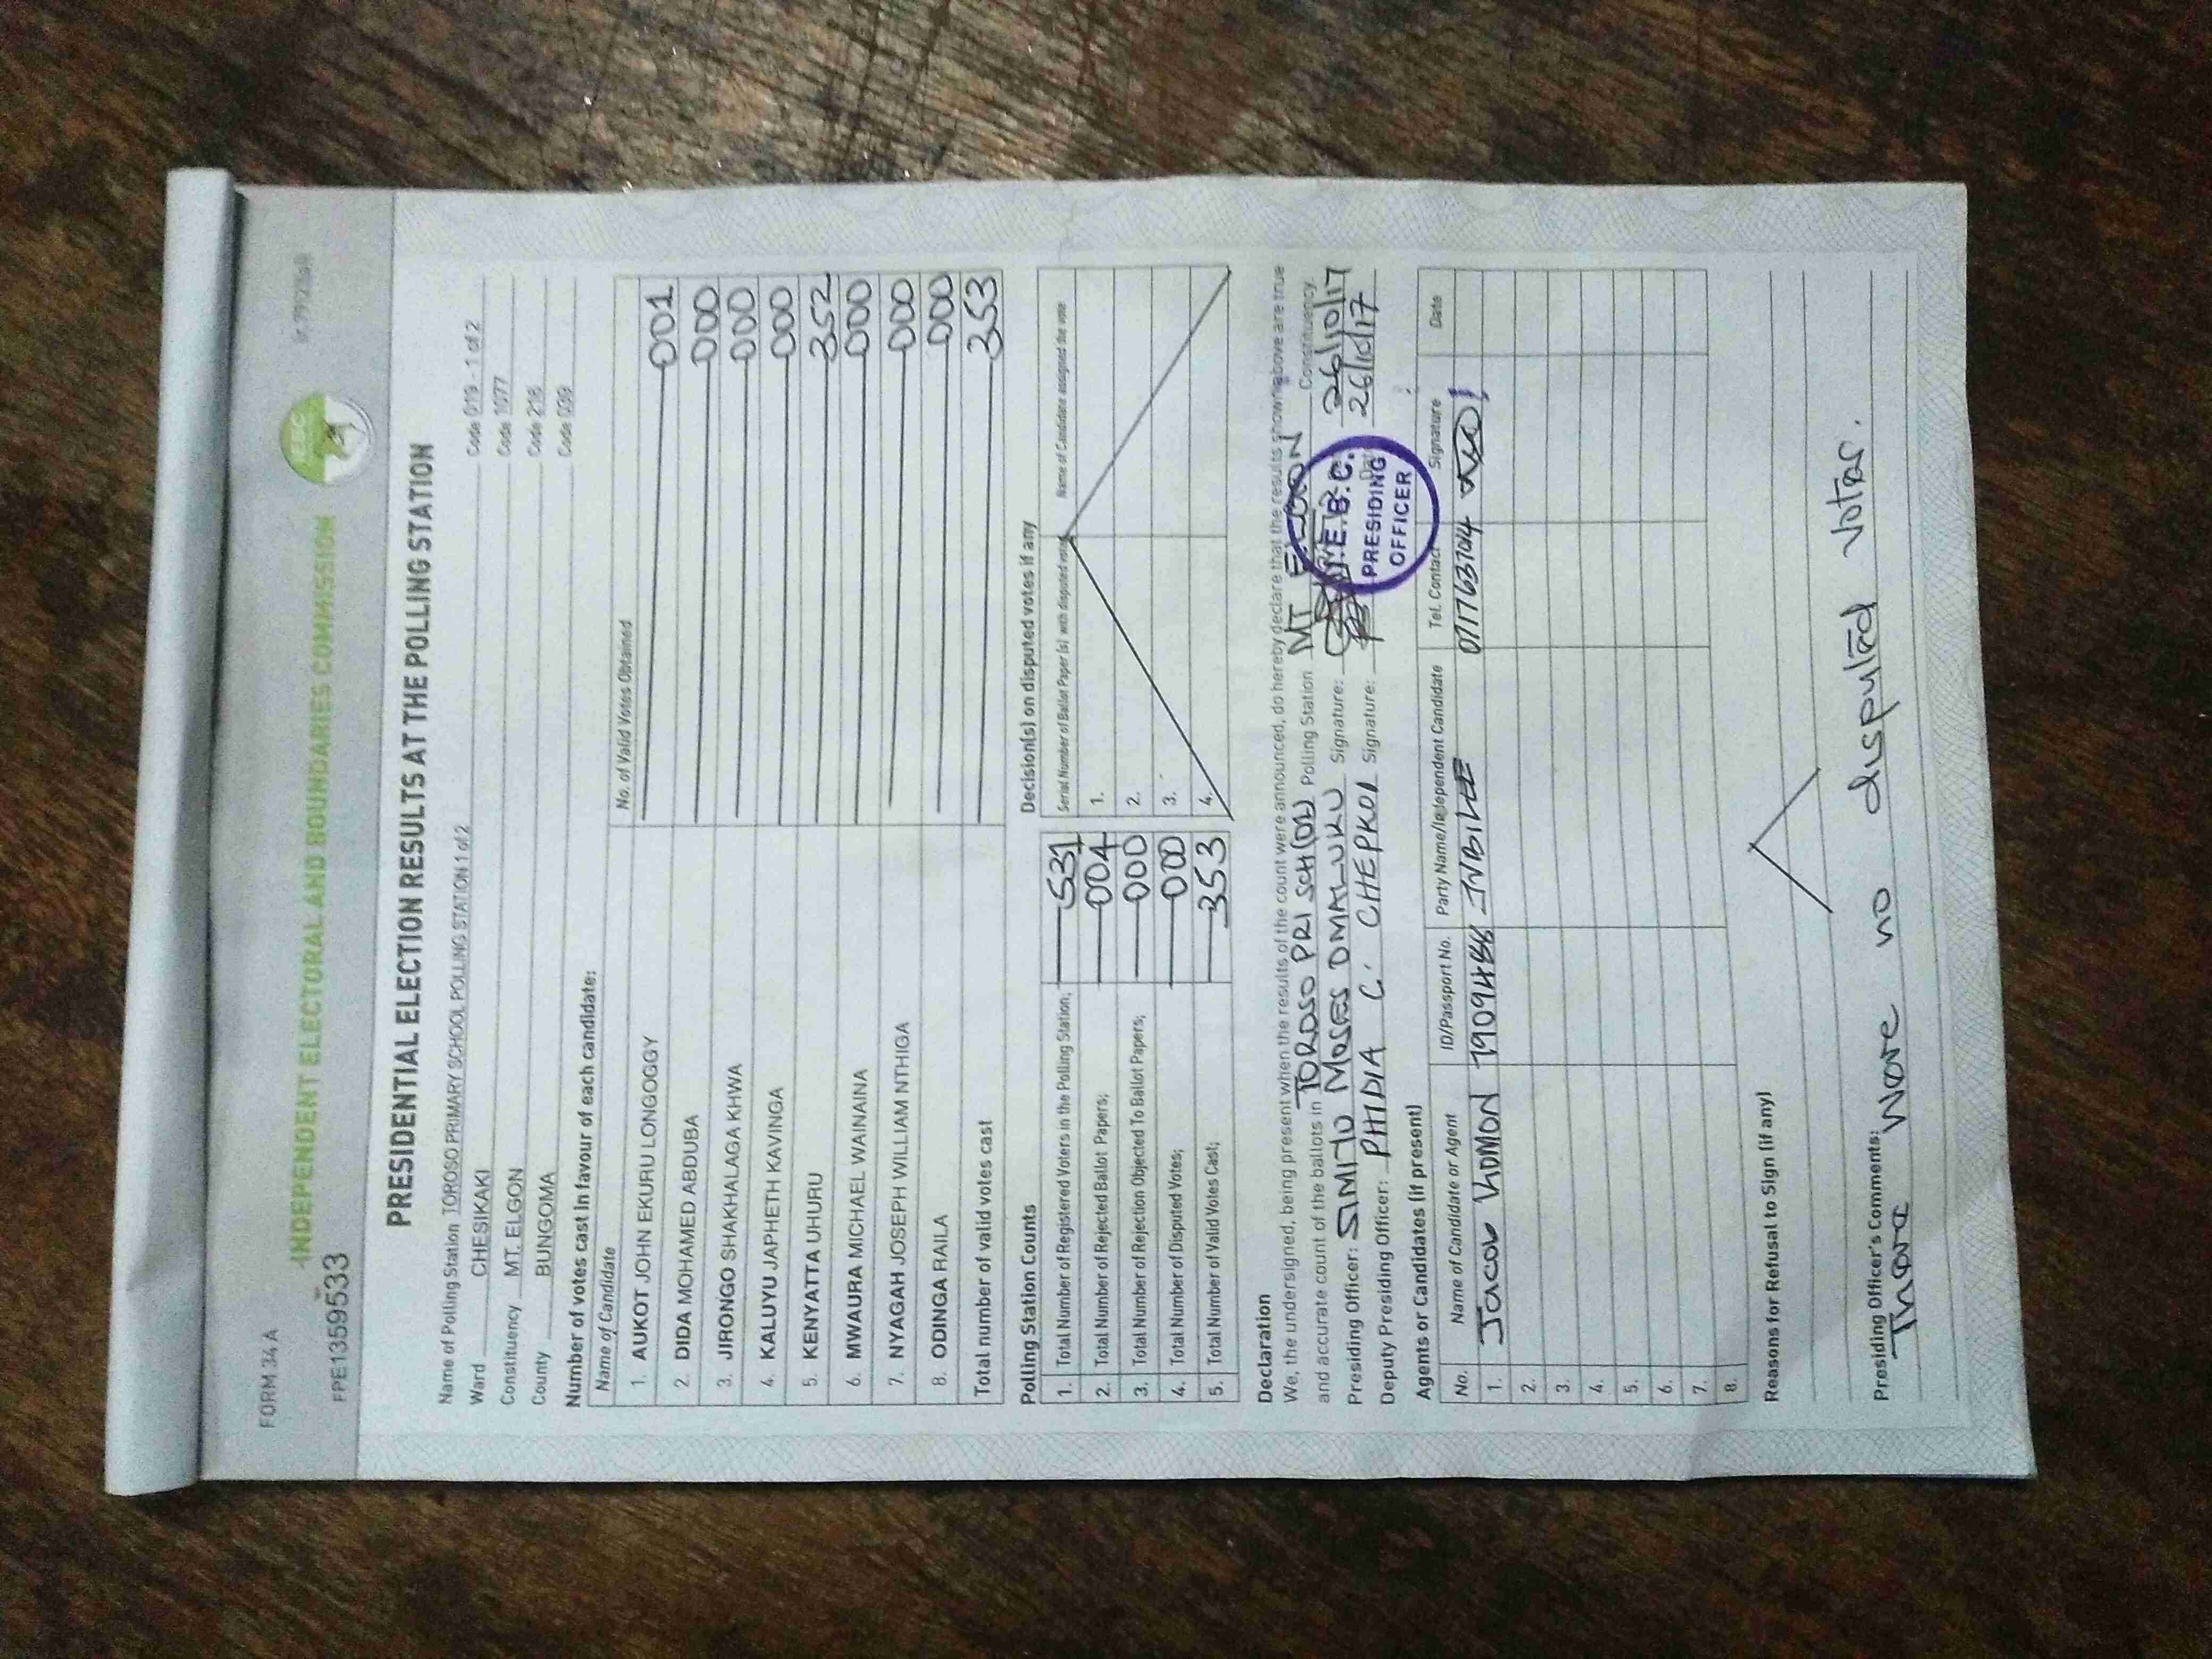 FORM 34 A
INDEPENDENT ELECTORAL AND BOUNDARIES COMMISSION
IEBC
FPE1359533
PRESIDENTIAL ELECTION RESULTS AT THE POLLING STATION
Name of Polling Station TOROSO PRIMARY SCHOOL POLLING STATION 1 of 2 Code 019 - 1 of 2
Ward CHESIKAKI Code 1077
Constituency MT. ELGON Code 216
County BUNGOMA Code 039
Number of votes cast in favour of each candidate:
Name of Candidate No. of Valid Votes Obtained
1. AUKOT JOHN EKURU LONGOGGY 001
2. DIDA MOHAMED ABDUBA 000
3. JIRONGO SHAKHALAGA KHWA 000
4. KALUYU JAPHETH KAVINGA 000
5. KENYATTA UHURU 352
6. MWAURA MICHAEL WAINAINA 000
7. NYAGAH JOSEPH WILLIAM NTHIGA 000
8. ODINGA RAILA 000
Total number of valid votes cast 353
Polling Station Counts
1. Total Number of Registered Voters in the Polling Station; 531
2. Total Number of Rejected Ballot Papers; 004
3. Total Number of Rejection Objected To Ballot Papers; 000
4. Total Number of Disputed Votes; 000
5. Total Number of Valid Votes Cast; 353
Decision(s) on disputed votes if any
Serial Number of Ballot Paper (s) with disputed votes Name of Candidate assigned the vote
1.
2.
3.
4.
Declaration
We, the undersigned, being present when the results of the count were announced, do hereby declare that the results shown above are true
and accurate count of the ballots in TOROSO PRI SCHOOL Polling Station MT ELGON Constituency.
Presiding Officer: SIMIYU MOSES Signature: 26/10/17
Deputy Presiding Officer: PHIDIA C. CHEPKOI Signature: Date 26/10/17
I.E.B.C.
PRESIDING
OFFICER
Agents or Candidates (if present)
No. Name of Candidate or Agent ID/Passport No. Party Name/Independent Candidate Tel. Contact Signature Date
1. Jacob KOMON JUBILEE 0717763704
2.
3.
4.
5.
6.
7.
8.
Reasons for Refusal to Sign (if any)
Presiding Officer's Comments:
There were no disputed votes.